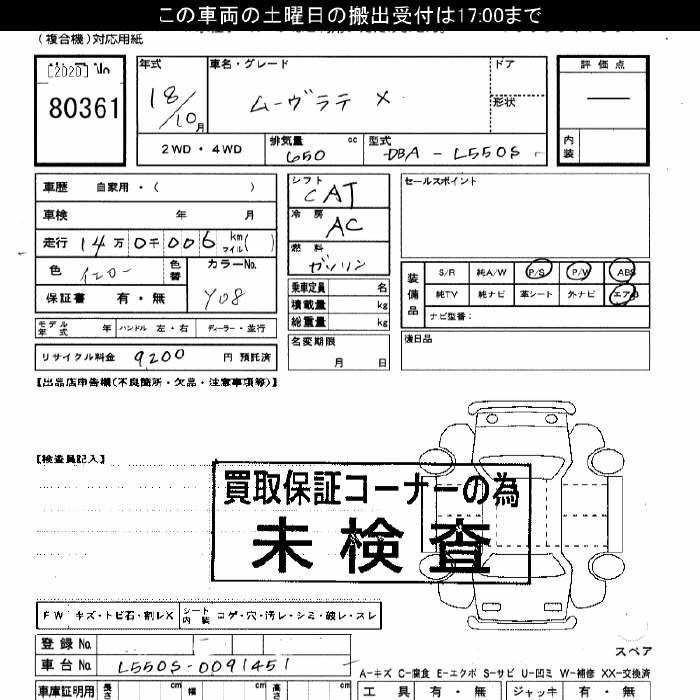 この車両の土曜日の搬出受付は17:00まで
(複合機)対応用紙
[2020] No
80361
年式
18/10月
車名・グレード
ムーヴラテ X
ドア
形状
評価点
内装
2WD・4WD
排気量 650 cc
型式 DBA - L550S
車歴 自家用・( )
車検 年 月
走行 14万 0千006 km マイル( )
色 イエロー 色替
カラーNo. Y08
保証書 有・無
シフト CAT
冷房 AC
燃料 ガソリン
乗車定員 名
積載量 kg
総重量 kg
名変期限
月 日
セールスポイント
装備品
S/R 純A/W P/S P/W ABS
純TV 純ナビ 革シート 外ナビ エアB
ナビ型番:
後日品
モデル年式 年 ハンドル 左・右 ディーラー・並行
リサイクル料金 9200 円 預託済
【出品店申告欄(不良箇所・欠品・注意事項等)】
【検査員記入】
買取保証コーナーの為
未検査
FW キズ・トビ石・割レX
シート内装 コゲ・穴・汚レ・シミ・破レ・スレ
登録No.
車台No. L550S-0091451
スペア
A-キズ C-腐食 E-エクボ S-サビ U-凹ミ W-補修 XX-交換済
車庫証明用 長さ cm 幅 cm 高さ cm
工具 有・無 ジャッキ 有・無